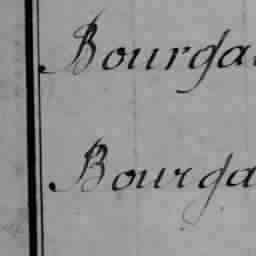 Bourga
Bourga